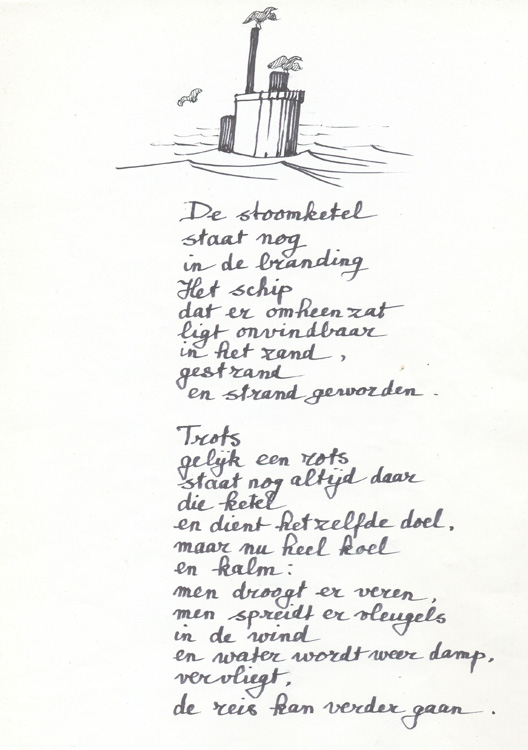 De stoomketel
staat nog
in de branding
Het schip
dat er omheen zat
ligt onvindbaar
in het zand,
gestrand
en strand geworden.

Trots
gelijk een rots
staat nog altijd daar
die ketel
en dient hetzelfde doel,
maar nu heel koel
en kalm:
men droogt er veren,
men spreidt er vleugels
in de wind
en water wordt weer damp,
vervliegt,
de reis kan verder gaan.